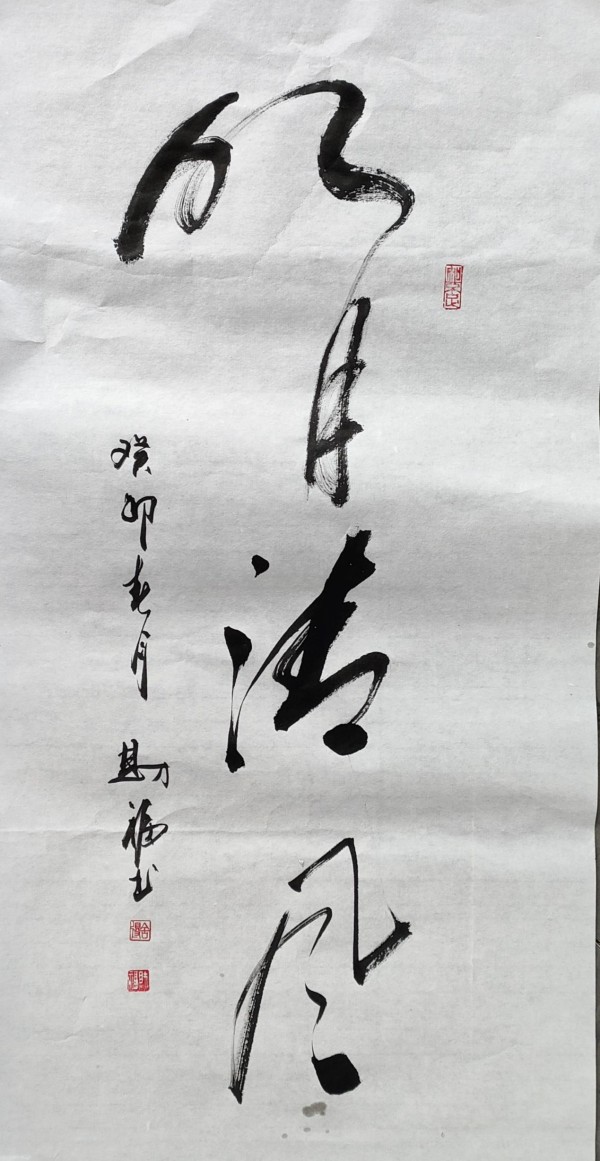 明月清风
癸卯春月 财福书